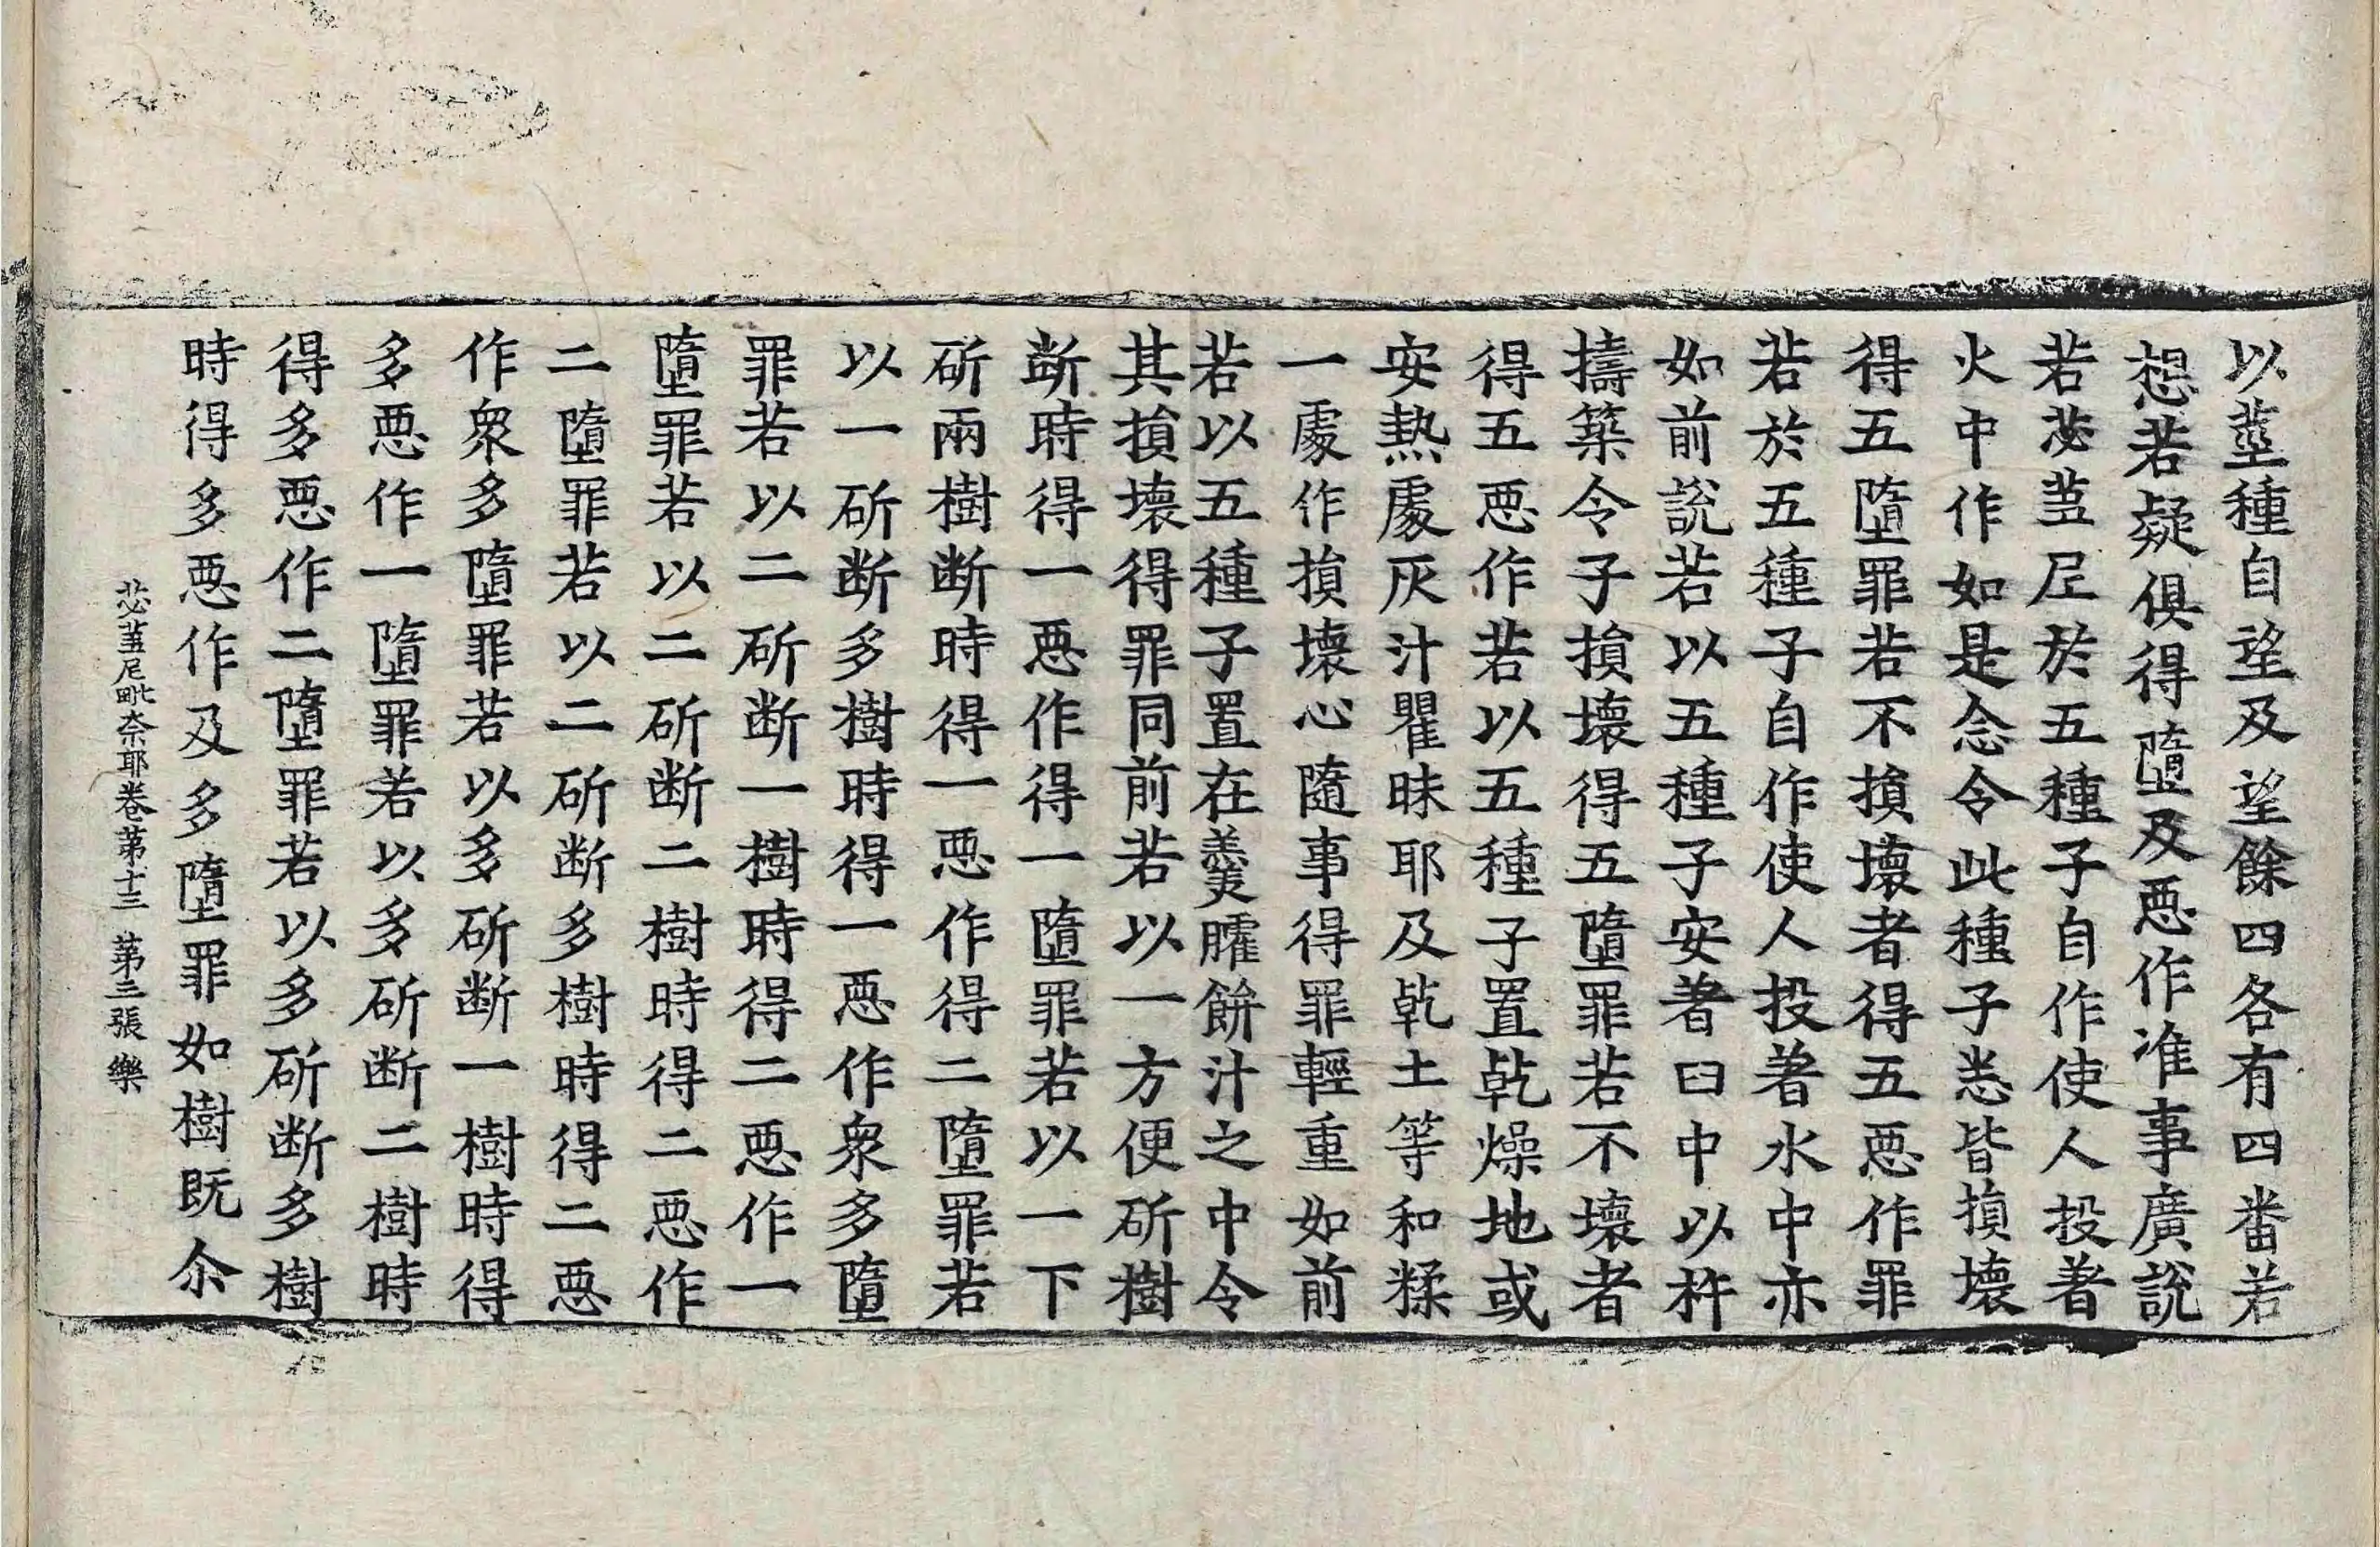 以莖種自望及望餘四各有四番若
想若疑俱得墮及惡作准事廣說
若苾蒭尼於五種子自作使人投著
火中作如是念令此種子悉皆損壞
得五墮罪若不損壞者得五惡作罪
若於五種子自作使人投著水中亦
如前說若以五種子安著臼中以杵
擣築令子損壞得五墮罪若不壞者
得五惡作若以五種子置乾燥地或
安熱處灰汁瞿昧耶及乾土等和糅
一處作損壞心隨事得罪輕重如前
若以五種子置在羹臛餅汁之中令
其損壞得罪同前若以一方便斫樹
斷時得一惡作得一墮罪若以一下
斫兩樹断時得一惡作得二墮罪若
以一斫断多樹時得一惡作衆多墮
罪若以二斫断一樹時得二惡作一
墮罪若以二斫断二樹時得二惡作
二墮罪若以二斫断多樹時得二惡
作衆多墮罪若以多斫断一樹時得
多惡作一墮罪若以多斫断二樹時
得多惡作二墮罪若以多斫断多樹
時得多惡作及多墮罪如樹既尒
苾蒭尼毗奈耶卷第十三 第三張 樂